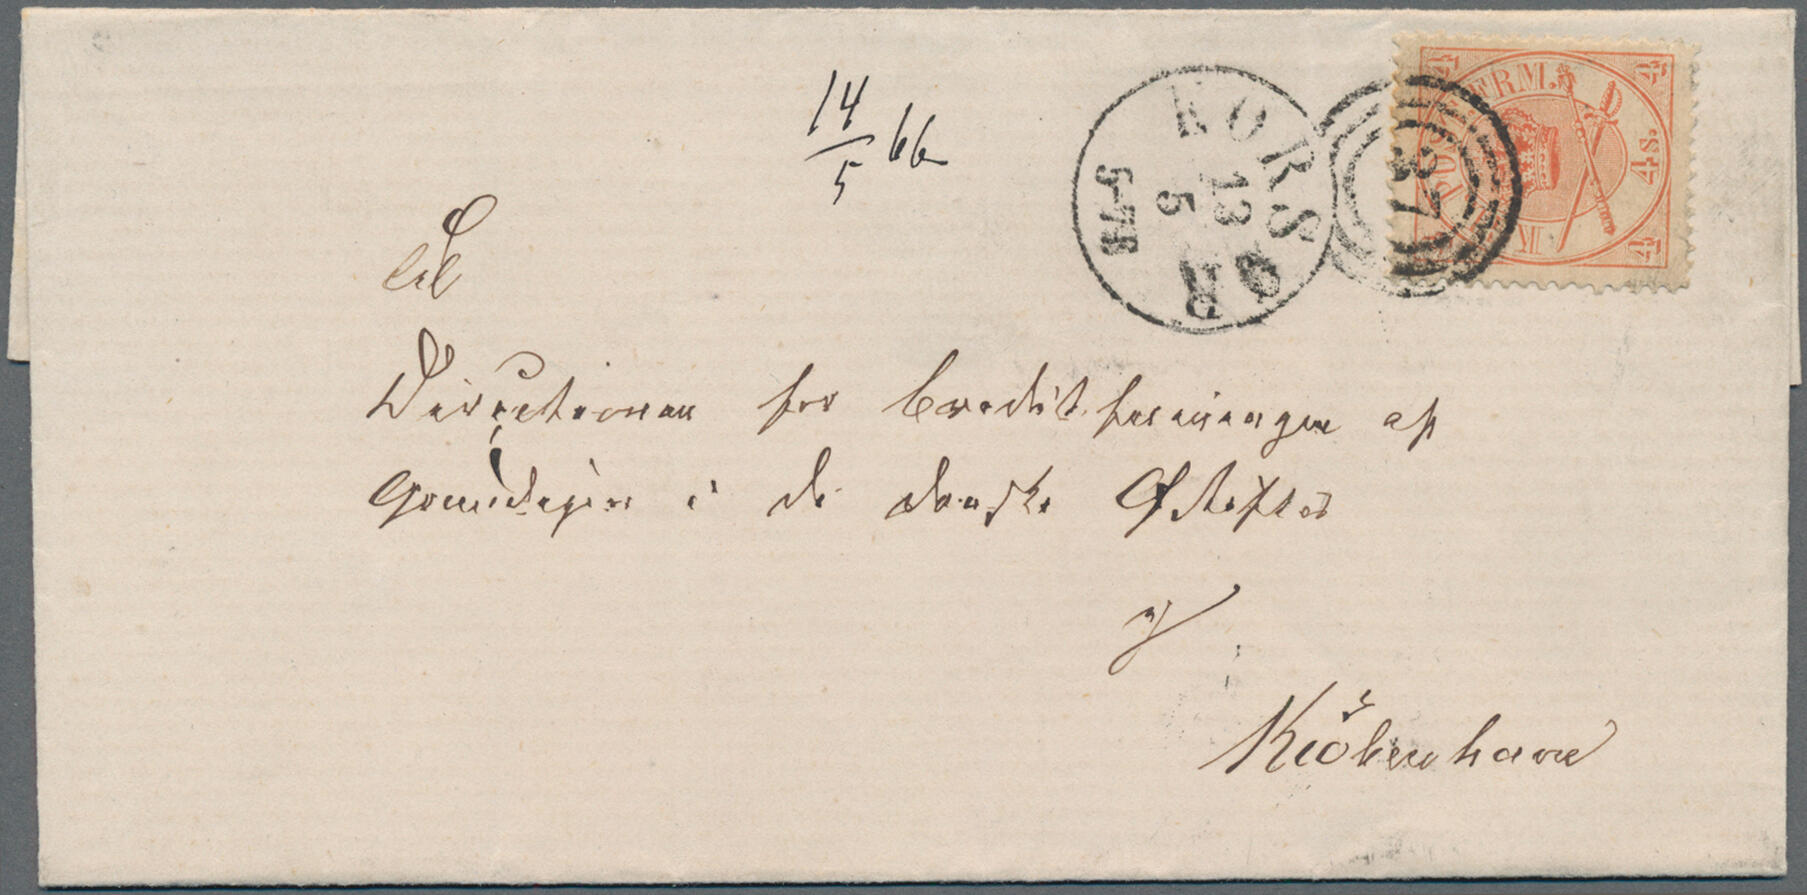 14/5 66
KORSØR
13
5
5-7 E
37
POSTFRM.
4 4 4
4 s.
KM
Til
Directionen for Creditforeningen af
Grundejere i de danske Østifter
i
Kiöbenhavn